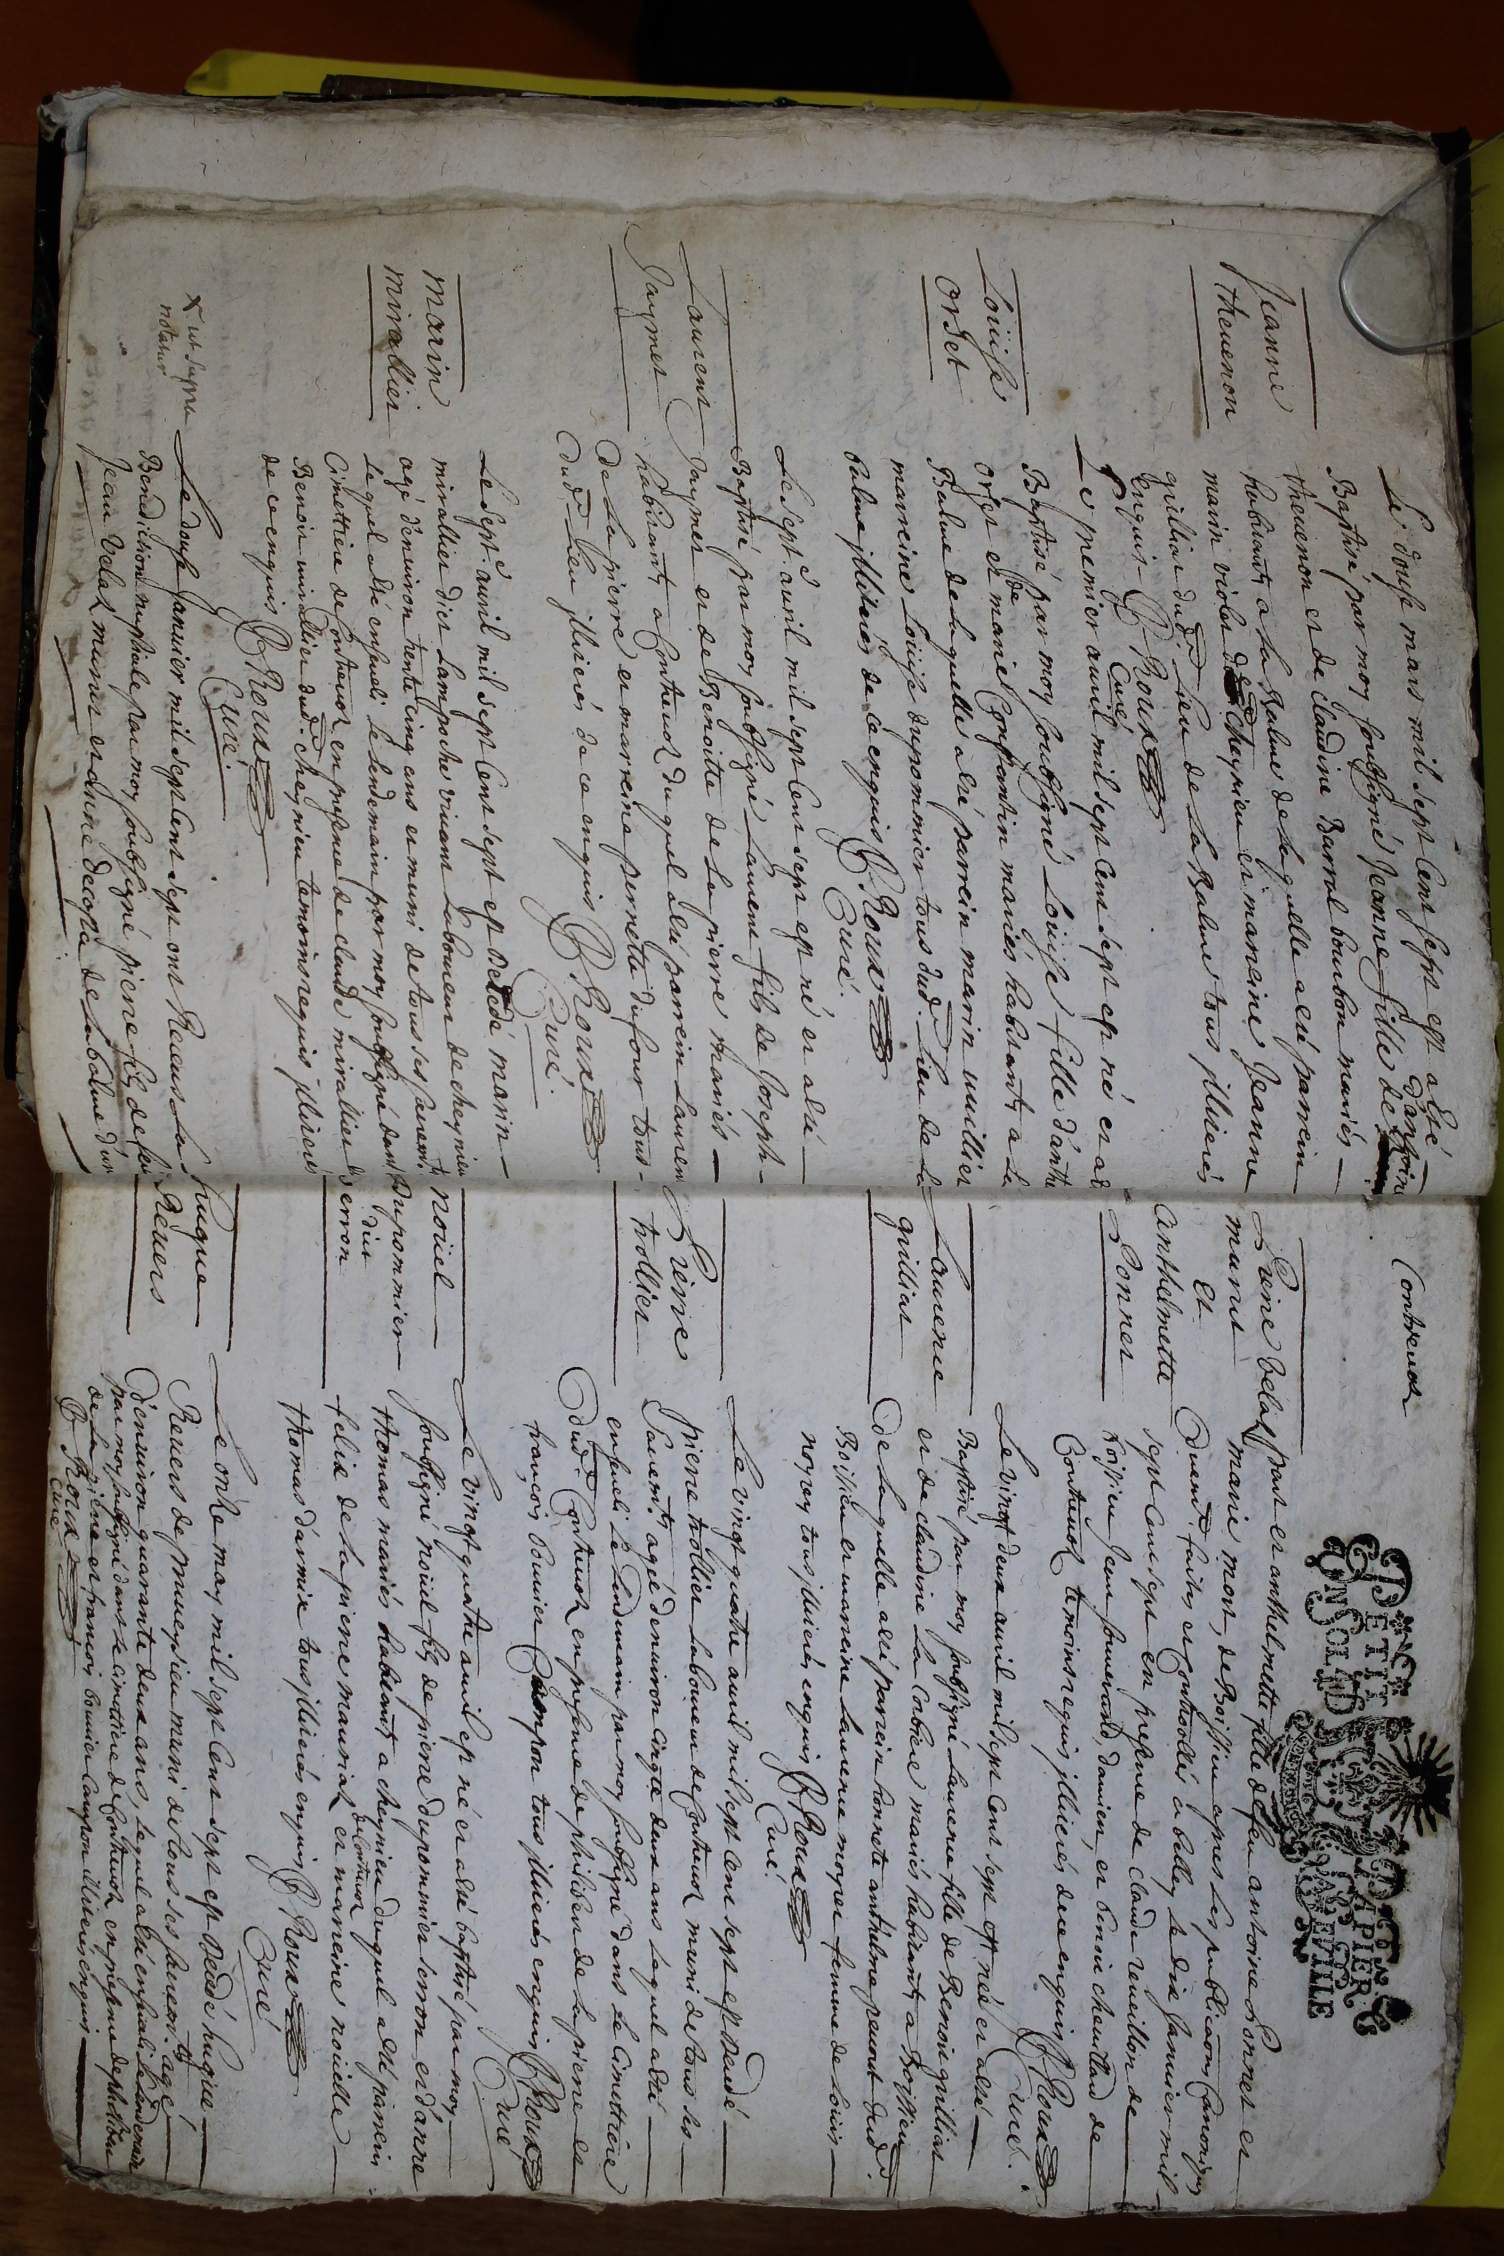 Jeanne
thevenon
Le douse mars mil sept Cent sept est a Esté
Baptisé par moy soubsigné Jeanne fille de d'anthoine
thevenon et de Claudine Barral bourbon mariés
habitants a la Balme de laquelle a esté parrein
marin violet de Cheynieu et marreine Jeanne
grilliat dud. Lieu de la Balme tous illiterés
Enquis B Roux
Curé
Loüise
orset
Le premier avril mil sept Cent sept est né et a esté
Baptisé par moy soubsigné Loüise fille d'anthe
orset et de marie Constantin mariés habitants a la
Balme de laquelle a esté parrein marin vuillier
marreine Loüise dupommier tous dud. Lieu de la
Balme illiterés de ce enquis B Roux
Curé.
Laurent
Jaymet
Le sept avril mil sept Cent sept est né et a esté
Baptisé par moy soubsigné Laurent fils de Joseph
Jaymet et de Benoitte de la pierre mariés
habitants a Contrevoz duquel a esté parrein Laurent
de la pierre et marreine pernette dufour tous
dud. Lieu illiterés de ce enquis B Roux
Curé.
marin
mirallier
Le sept avril mil sept Cent sept est décédé marin
mirallier dict Lampoche vivant Laboureur de cheynieu
agé d'environ trente cinq ans et muni de tous ses sacrem.ts
Lequel a esté enseveli le lendemain par moy soubsigné dans
Cimettiere de Contrevoz en presence de claude mirallier
Benoit mirallier dud. Cheynieu temoins requis illiterés
de ce enquis B Roux
Curé.
x ut supra
notatur
Le douse Janvier mil sept Cent sept ont Receus la
Benediction nuptiale par moy soubsigné pierre fils de feu
Jean Velat munet et d'une de la balme d'un
Contrevoz
PETIT PAPIER
UN SOL
LA FEUILLE
Pierre Velat
munet
Et
Anthelmette
Bonnet
part et anthelmette fille de feu antoine Bonnet et
marie moret, de Boissieu apres les publicaons Canoniques
duement faites et Controllés a belley le dix Janvier mil
sept Cent sept en presence de claude reveillon de
boissieu Jean damien, et benoit cheullad de
Contrevoz temoins requis illiterés de ce enquis B Roux
Curé.
Laurence
grilliat
Le vingt deux avril mil sept Cent sept est née et a esté
Baptisé par moy soubsigné Laurence fille de Benoit grilliat
et de claudine la Corbiere mariés habitants a Boissieu
de laquelle a esté parrein honnete anthelme peuvent dud.
Boissieu et marreine Laurence moyret femme de Louis
noyret tous illiterés enquis B Roux
Curé.
Pierre
trollier
Le vingt quatre avril mil sept Cent sept est décédé
pierre trollier Laboureur de Contrevoz muni de tous ses
Sacrem.ts agé d'environ cinqte deux ans lequel a esté
enseveli le lendemain par moy soubsigné dans le cimettiere
dud. Contrevoz en presence de philibert de la pierre et
françois bouvier tous illiterés enquis B Roux
Curé
noüel
dupommier
dit
serron
Le vingt quatre avril est né et a esté baptisé par moy
soubsigné noüel fils de pierre dupommier serron et d'anne
thomas mariés habitants a cheynieu duquel a esté parrein
felix de la pierre mauriat de Contrevoz et marreine noüelle
thomas d'armix tous illiterés enquis B Roux
Curé.
hugue
Revers
Le onze may mil sept Cent sept est décédé hugue
Revers de prunepsieu muni de tous ses sacrem.ts agé
d'environ quarante deux ans, lequel a esté enseveli le lendemain
par moy soubsigné dans le cimettiere de Contrevoz en presence de philibert
de la pierre et francois bouvier illiterés enquis
B Roux
Curé